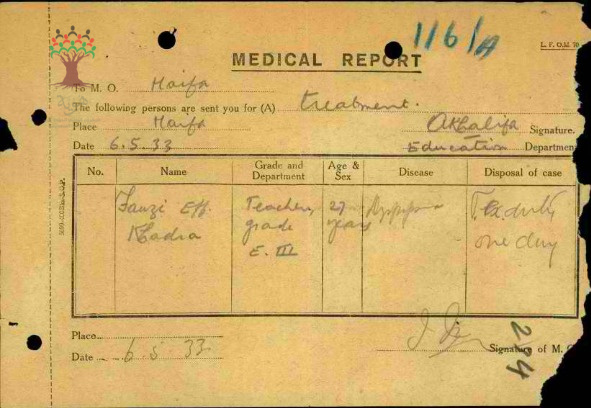 116/A
L. F. O. M. 70
MEDICAL REPORT
To M. O. Haifa
The following persons are sent you for (A) treatment.
Place Haifa AKhalifa Signature.
Date 6.5.33 Education Department
No. Name Grade and Department Age & Sex Disease Disposal of case
Fauzi Eff. Teacher, 27 one day
Khadra grade years
E. III
Place
Date 6.5 33 Signature of M.
224